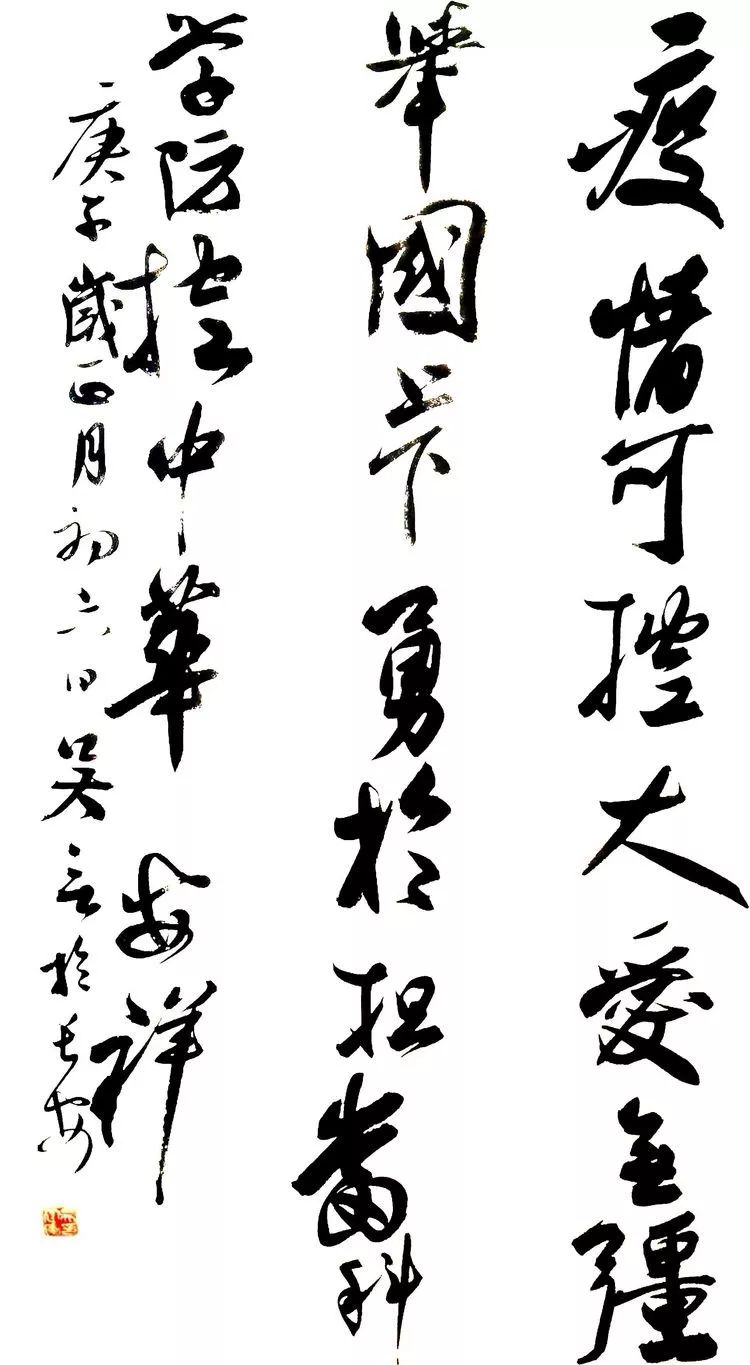 疫情可控大愛無疆
舉國上下勇於担當科
学防控中華安祥
庚子歲正月初六日吴言於长安